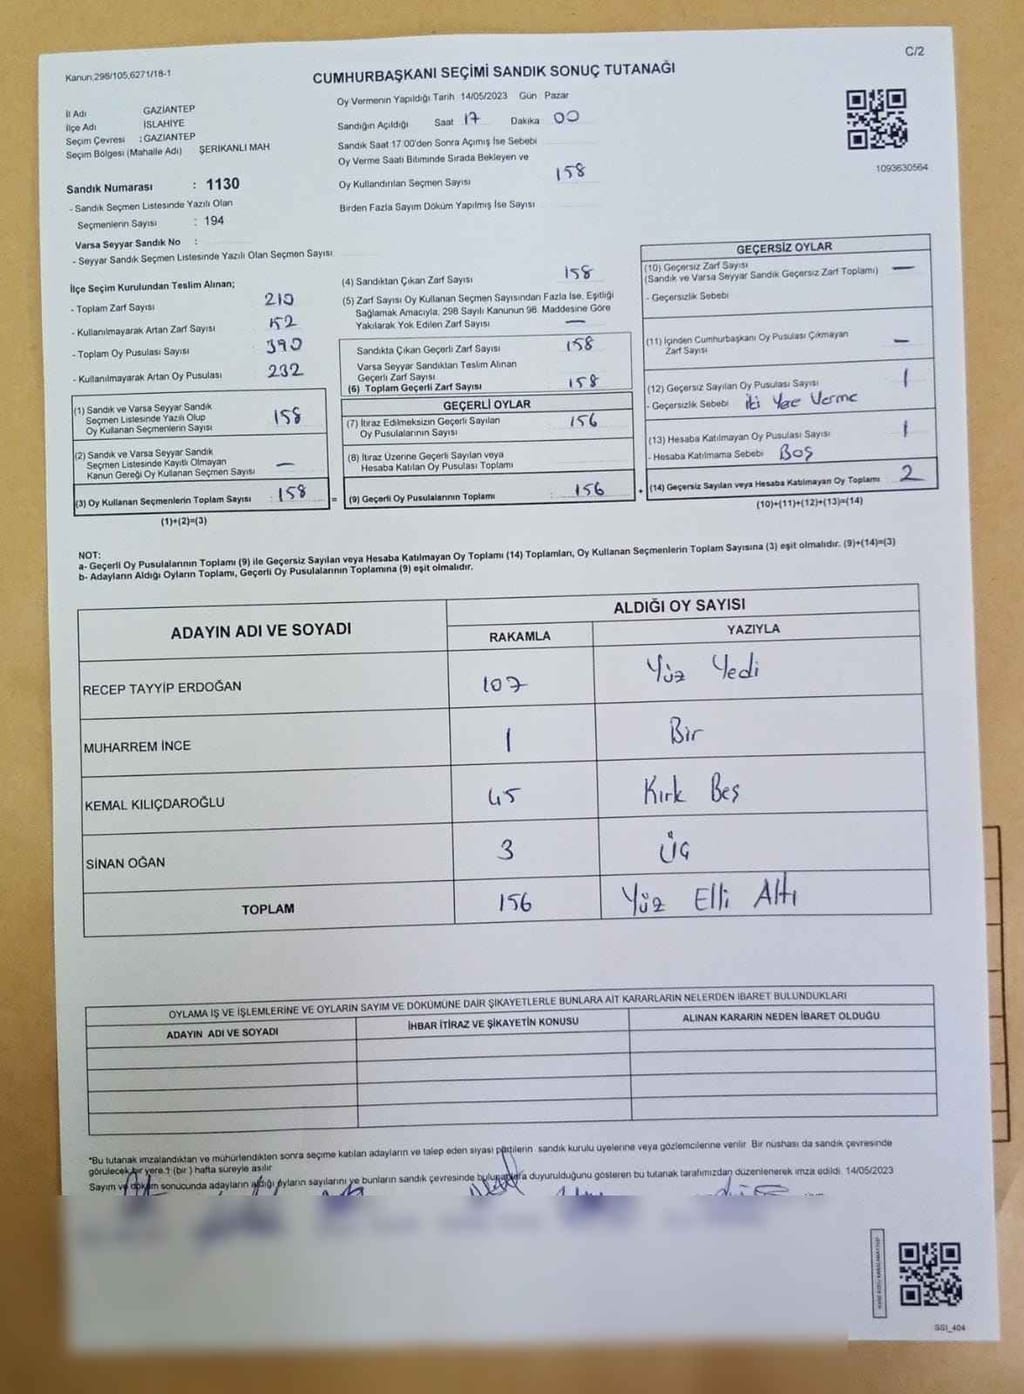 C/2
Kanun;298/105,6271/18-1
CUMHURBAŞKANI SEÇİMİ SANDIK SONUÇ TUTANAĞI
İl Adı GAZİANTEP
İlçe Adı İSLAHİYE
Seçim Çevresi : GAZİANTEP
Seçim Bölgesi (Mahalle Adı) ŞERİKANLI MAH
Sandık Numarası : 1130
- Sandık Seçmen Listesinde Yazılı Olan
Seçmenlerin Sayısı : 194
Varsa Seyyar Sandık No :
- Seyyar Sandık Seçmen Listesinde Yazılı Olan Seçmen Sayısı
Oy Vermenin Yapıldığı Tarih 14/05/2023 Gün Pazar
Sandığın Açıldığı Saat 17 Dakika 00
Sandık Saat 17.00'den Sonra Açımış İse Sebebi
Oy Verme Saati Bitiminde Sırada Bekleyen ve
Oy Kullandırılan Seçmen Sayısı 158
Birden Fazla Sayım Döküm Yapılmış İse Sayısı
1093630564
İlçe Seçim Kurulundan Teslim Alınan;
- Toplam Zarf Sayısı 210
- Kullanılmayarak Artan Zarf Sayısı 52
- Toplam Oy Pusulası Sayısı 390
- Kullanılmayarak Artan Oy Pusulası 232
(1) Sandık ve Varsa Seyyar Sandık
Seçmen Listesinde Yazılı Olup
Oy Kullanan Seçmenlerin Sayısı 158
(2) Sandık ve Varsa Seyyar Sandık
Seçmen Listesinde Kayıtlı Olmayan
Kanun Gereği Oy Kullanan Seçmen Sayısı —
(3) Oy Kullanan Seçmenlerin Toplam Sayısı : 158
(1)+(2)=(3)
(4) Sandıktan Çıkan Zarf Sayısı 158
(5) Zarf Sayısı Oy Kullanan Seçmen Sayısından Fazla İse, Eşitliği
Sağlamak Amacıyla, 298 Sayılı Kanunun 98. Maddesine Göre
Yakılarak Yok Edilen Zarf Sayısı —
Sandıkta Çıkan Geçerli Zarf Sayısı 158
Varsa Seyyar Sandıktan Teslim Alınan
Geçerli Zarf Sayısı
(6) Toplam Geçerli Zarf Sayısı 158
GEÇERLİ OYLAR
(7) İtiraz Edilmeksizin Geçerli Sayılan
Oy Pusulalarının Sayısı 156
(8) İtiraz Üzerine Geçerli Sayılan veya
Hesaba Katılan Oy Pusulası Toplamı
= (9) Geçerli Oy Pusulalarının Toplamı : 156
GEÇERSİZ OYLAR
(10) Geçersiz Zarf Sayısı
(Sandık ve Varsa Seyyar Sandık Geçersiz Zarf Toplamı) —
- Geçersizlik Sebebi
(11) İçinden Cumhurbaşkanı Oy Pusulası Çıkmayan
Zarf Sayısı —
(12) Geçersiz Sayılan Oy Pusulası Sayısı 1
- Geçersizlik Sebebi iki Yere Verme
(13) Hesaba Katılmayan Oy Pusulası Sayısı 1
- Hesaba Katılmama Sebebi Boş
+ (14) Geçersiz Sayılan veya Hesaba Katılmayan Oy Toplamı 2
(10)+(11)+(12)+(13)=(14)
NOT:
a- Geçerli Oy Pusulalarının Toplamı (9) ile Geçersiz Sayılan veya Hesaba Katılmayan Oy Toplamı (14) Toplamları, Oy Kullanan Seçmenlerin Toplam Sayısına (3) eşit olmalıdır. (9)+(14)=(3)
b- Adayların Aldığı Oyların Toplamı, Geçerli Oy Pusulalarının Toplamına (9) eşit olmalıdır.
ADAYIN ADI VE SOYADI
ALDIĞI OY SAYISI
RAKAMLA YAZIYLA
RECEP TAYYİP ERDOĞAN 107 Yüz Yedi
MUHARREM İNCE 1 Bir
KEMAL KILIÇDAROĞLU 45 Kırk Beş
SİNAN OĞAN 3 Üç
TOPLAM 156 Yüz Elli Altı
OYLAMA İŞ VE İŞLEMLERİNE VE OYLARIN SAYIM VE DÖKÜMÜNE DAİR ŞİKAYETLERLE BUNLARA AİT KARARLARIN NELERDEN İBARET BULUNDUKLARI
ADAYIN ADI VE SOYADI İHBAR İTİRAZ VE ŞİKAYETİN KONUSU ALINAN KARARIN NEDEN İBARET OLDUĞU
*Bu tutanak imzalandıktan ve mühürlendikten sonra seçime katılan adayların ve talep eden siyasi partilerin sandık kurulu üyelerine veya gözlemcilerine verilir. Bir nüshası da sandık çevresinde
görülecek bir yere 1 (bir) hafta süreyle asılır.
Sayım ve döküm sonucunda adayların aldığı oyların sayılarını ve bunların sandık çevresinde bulunanlara duyurulduğunu gösteren bu tutanak tarafımızdan düzenlenerek imza edildi. 14/05/2023
SSI_404